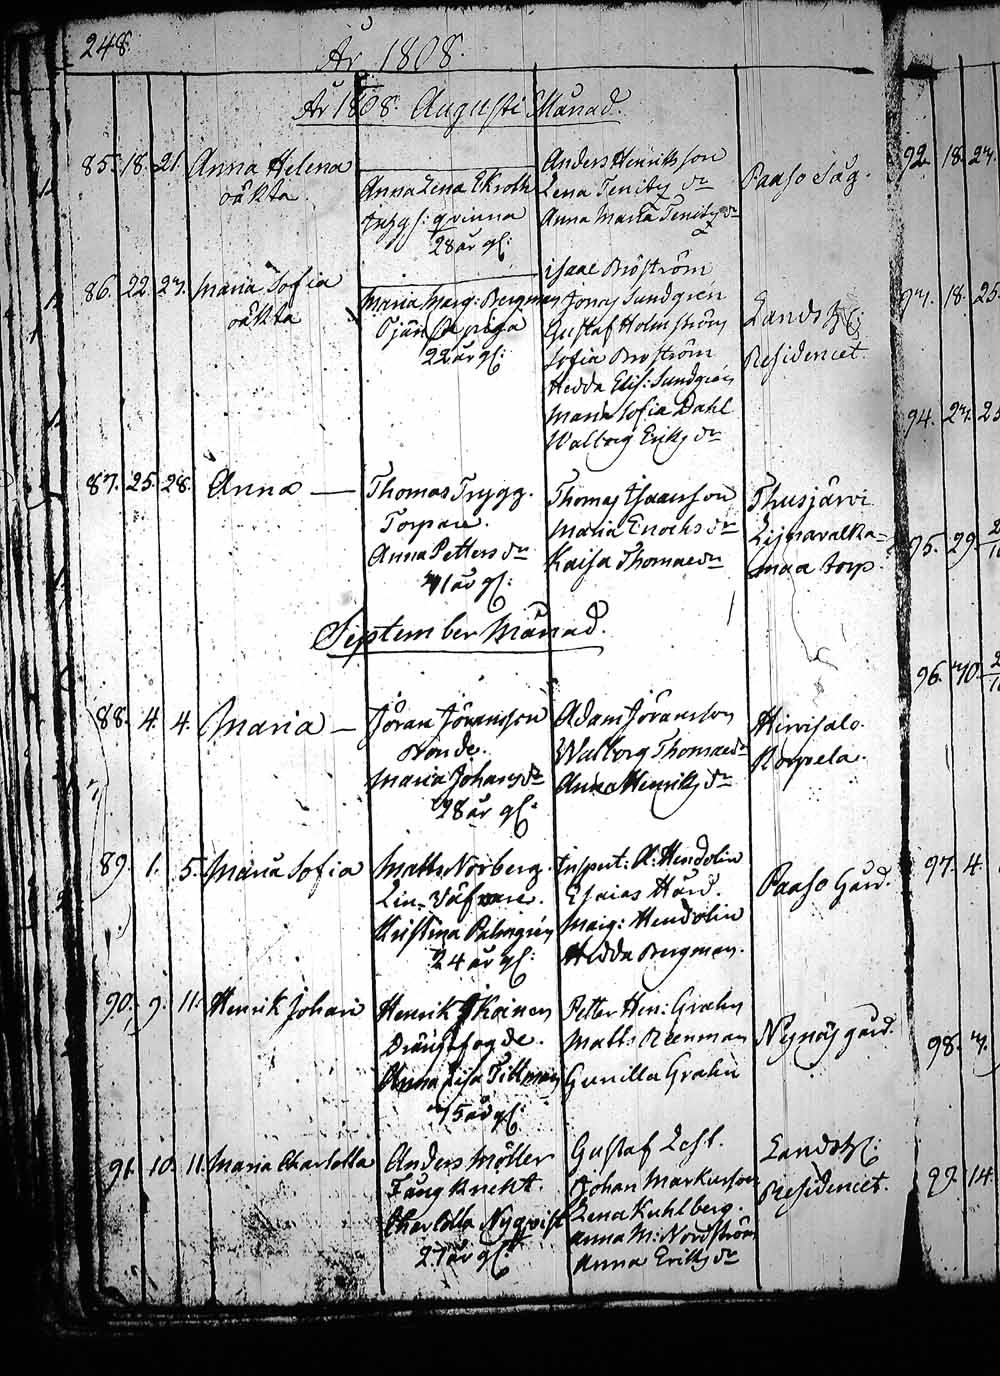 248.
År 1808.
År 1808. Augusti Månad.
85. 18. 21. Anna Helena
oäkta
Anna Lena Ekroth
Inhys: qvinna
28 år gl:
Anders Henriksson
Lena Dr
Anna Maria Dr
Paaso Såg.
86. 22. 27. Maria Sofia
oäkta
Maria Marg: Bergman
Tjänste piga
22 år gl:
Isaac Broström
Jonas Sundgren
Gustaf Holmström
Sofia Broström
Hedda Elis: Sundgren
Maria Sofia Dahl
Walborg Eriks Dr
Lands
Residencet.
87. 25. 28. Anna —
Thomas Trygg.
Torpare.
Anna Petters Dr
41 år gl:
Thomas Isaacsson
Maria Enochs Dr
Kaisa Thomae Dr
Thusjärvi
maa torp.
September Månad.
88. 4. 4. Maria —
Jöran Jöransson
Bonde.
Maria Johans Dr
28 år gl:
Adam Jöransson
Walborg Thomae Dr
Anna Henriks Dr
Hirvisalo.
89. 1. 5. Maria Sofia
Matts Norberg.
Lin-Väfvare.
Kristina Palmgrén
24 år gl:
Inspect: A: Hendolin
Esaias Hård.
Marg: Hendolin
Hedda Bergman.
Paaso Gård.
90. 9. 11. Henrik Johan
Henrik Ikoinen
Drängfogde.
Anna Lisa Tillman
35 år gl:
Petter Hen: Grahn
Matts Reenman
Gunilla Grahn
Nynäs gård.
91. 10. 11. Maria Charlotta
Anders Möller
Fångknekt.
Charlotta Nyqvist
27 år gl:
Gustaf
Johan Markusson
Lena Kuhlberg.
Anna M: Nordström
Anna Eriks Dr
Lands
Residencet.
92. 18. 27.
18. 25.
94. 27.
95. 29.
96. 30.
97. 4.
98.
99. 14.